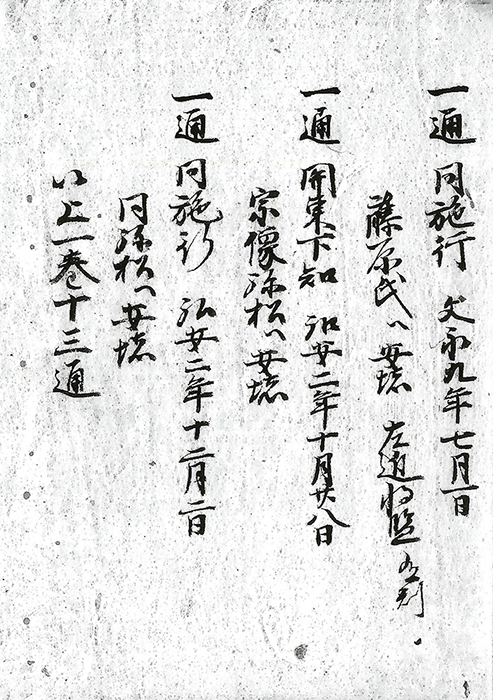 一通 同施行 文永九年七月一日
藤原氏ハ安堵 左近将監 在判
一通 関東下知 弘安二年十月廿八日
宗像弥松ハ安堵
一通 同施行 弘安二年十二月二日
同弥松ハ安堵
以上一巻十三通